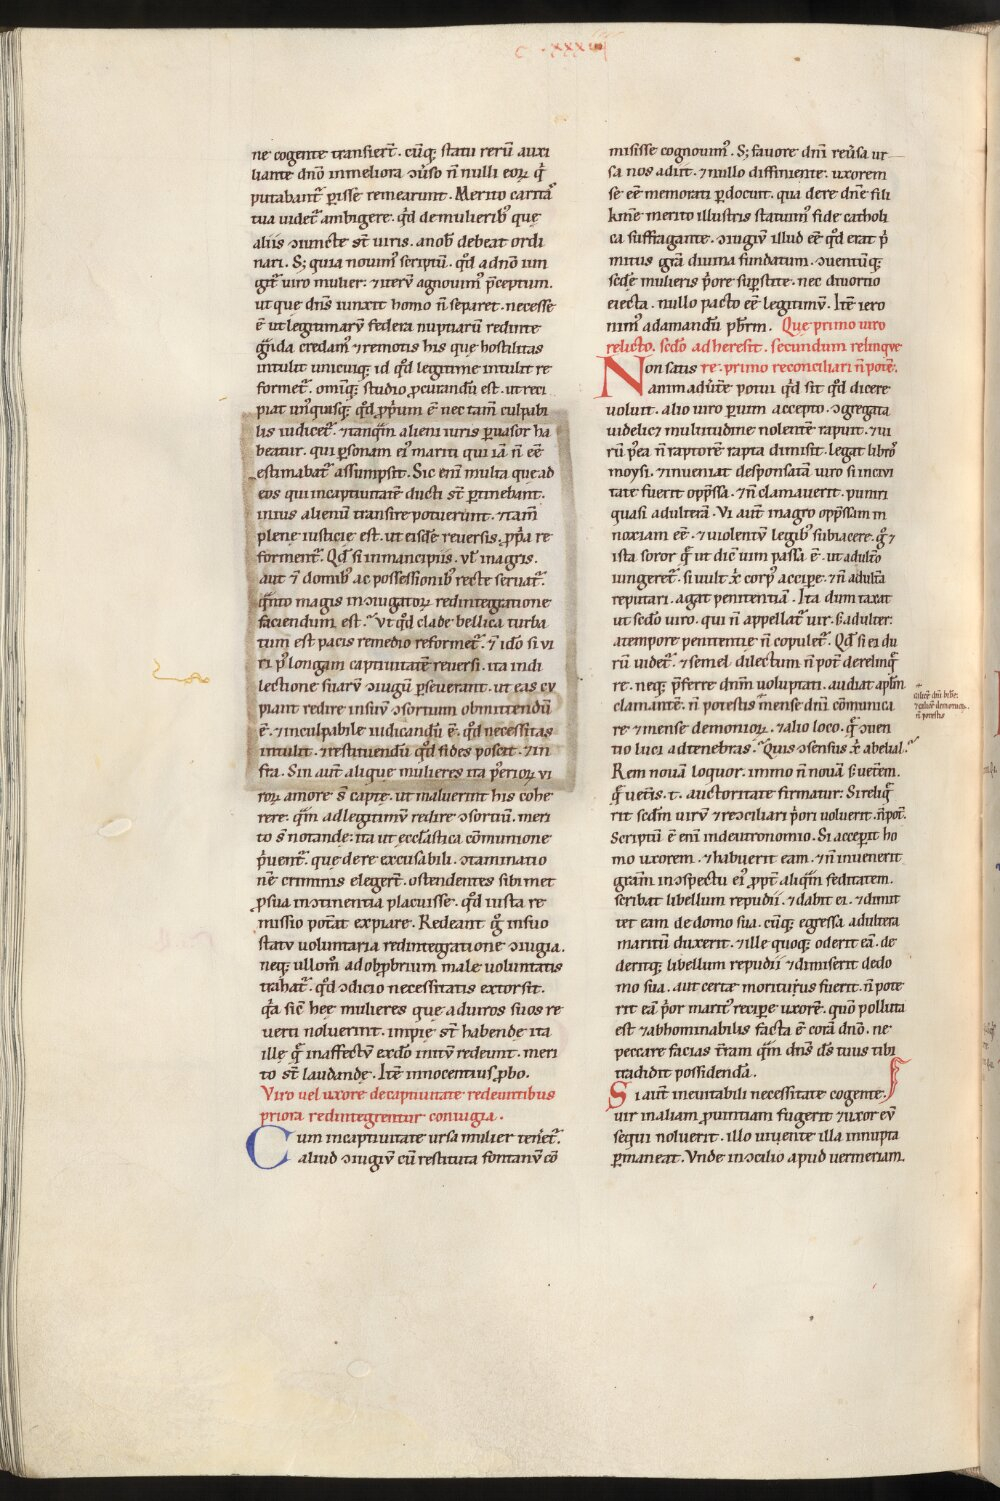 C. xxxiiii
ne cogente transiert̄. cūq; statu rerū auxi
liante dn̄o inmeliora ɔuso n̄ nulli eoꝝ q̇
putabantᷓ ꝑisse remearunt. Merito carita᷒
tua uidetᷓ ambigere. qd̄ demulierib᷒ que
aliis ɔiuncte st̄ uiris. anob̄ debeat ordi
nari. S; quia nouim᷒ scriptū. qd̄ adn̄o iun
git᷑ uiro mulier: ⁊iterū agnouim᷒ p̄ceptum.
ut que dn̄s iunxit homo n̄ separet. necesse
ē ut legitimarū federa nuptiarū redinte
gᷓnda credam᷒ ⁊remotis his que hostilitas
intulit unicuiq; id qd̄ legitime intulit re
formet᷑. omīq; studio ꝓcurandū est. ut reci
piat un᷒quisq; qd̄ ꝓpriū ē nec tam̄ culpabi
lis iudicet᷑. ⁊tanqᷓm alieni iuris ꝑuasor ha
beatur. qui ꝑsonam ei᷒ mariti qui iā n̄ eē
estimabat᷑ assumpsit. Sic eni multa que ad
eos qui incaptiuitatē ducti st̄ ꝑtinebant.
inius alienū transire potuerunt. ⁊tam̄
plene iusticie est. ut eisdē reuersis. ꝓpa re
forment᷑. Qd̄ si inmancipiis. ul̄ inagris.
aut ī domib᷒ ac possessionib᷒ recte seruat᷑.
qᷓnto magis inɔiugatoꝝ redintegratione
faciendum est. ut qd̄ clade bellica turba
tum est pacis remedio reformet᷑. ⁊ idō si ui
ri p᷒ longam captiuitatē reuersi. ita indi
lectione suarū ɔiugū ꝑseuerant. ut eas cu
piant redire insuū ɔsortium obmittendū
ē. ⁊inculpabile iudicandū ē. qd̄ necessitas
intulit. ⁊restituendū qd̄ fides poscit. ⁊in
fra. Sin aut̄ alique mulieres ita p̄rioꝝ ui
roꝝ amore s̄ capte. ut maluerint his cohe
rere. qᷓm adlegitimū redire ɔsortiū. meri
to s̄ notande: ita ut eccl̄astica cōmunione
p̄uent᷑. que dere excusabili. ɔtaminatio
nē criminis elegert̄. ostendentes sibimet
ꝓsua inɔtinentia placuisse. qd̄ iusta re
missio pot̄at expiare. Redeant g̊ insuo
statu uoluntaria redintegratione ɔiugia.
neq; ullom̄ ad obꝓbrium male uoluntatis
trahat᷑. qd̄ ɔdicio necessitatis extorsit.
qᷓ sic̄ hee mulieres que aduiros suos re
uerti noluerint. impie st̄ habende ita
ille q̄ inaffectū exdō initū redeunt. meri
to st̄ laudande. Itē innocentius ꝓbo.
Viro uel uxore decaptiuitate redeuntibus
priora redintegrentur coniugia.
Cum incaptiuitate ursa mulier teneret᷑.
aliud ɔiugiū cū restituta fontanū cō
misisse cognouim᷒. S; fauore dn̄i reuersa ur
sa nos adiit. ⁊nullo diffiniente. uxorem
se eē memorati ꝑdocuit. qua dere dn̄e fili
kme merito illustris statuim᷒ fide catholi
ca suffragante. ɔiugiū illud eē qd̄ erat p̄
mitus gr̄a diuina fundatum. ɔuentūq;
sede mulieris p̄ore suꝑstite. nec diuortio
eiecta. nullo pacto eē legitimū. Itē iero
nim᷒ adamandū pbr̄m. Que primo uiro
relicto. scd̄o adheresit. secundum relinque
re: primo reconciliari n̄ potē.
Non satis
anim aduertē potui qd̄ sit qd̄ dicere
uoluit. alio uiro ꝑuim accepto. ɔgregata
uidelic⁊ multitudine nolentē rapuit. ⁊ui
rū p᷒ea n̄ raptorē rapta dimisit. legat libro᷒
moysi. ⁊inueniat desponsatā uiro si inciui
tate fuerit opp̄ssa. ⁊n̄ clamauerit. puniri
quasi adulterā. Vi aut̄ inagro opp̄ssam in
noxiam eē. ⁊uiolentū legib᷒ subiacere. g̊ ⁊
ista soror q̄ ut dic̄ uim passa ē. ut adulto
iungeret᷑. si uult x̄ corp᷒ accipe. ⁊n̄ adulta
reputari. agat penitentiā. Ita dum taxat
ut scd̄o uiro. qui n̄ appellat᷑ uir. s. adulter.
atempore penitentie n̄ copulet᷑. Qd̄ si ei du
rū uidet᷑. ⁊semel dilectum n̄ pot̄ derelinq̄
re. neq; p̄ferre dnm̄ uoluptati. audiat apl̄m
clamantē. n̄ potestis mense dn̄i cōmunica
re ⁊mense demonioꝝ. ⁊alio loco. q̄ ɔuen
tio luci adtenebras. Quis ɔsensus x̄ abelial.
Rem nouā loquor. immo n̄ nouā s. ueterem.
q̄ uetis. t. auctoritate firmatur: Si reliq̄
rit scdm̄ uirū ⁊reɔciliari p̄ori uoluerit. n̄ pot̄.
Scriptū ē eni indeutronomio. Si acceperit ho
mo uxorem. ⁊habuerit eam. ⁊n̄ inuenerit
gram̄ inɔspectu ei᷒ ꝓpt̄ aliqᷓm feditatem.
scribat libellum repudii. ⁊dabit ei. ⁊dimit
tet eam de domo sua. cūq; egressa adultera
maritū duxerit. ⁊ille quoq; oderit eā. de
deritq; libellum repudii ⁊dimiserit dedo
mo sua. aut certe moriturus fuerit. n̄ pote
rit eā p̄or marit᷒ recipe uxorē. quō polluta
est ⁊abhominabilis facta ē corā dn̄o. ne
peccare facias tr̄am qᷓm dn̄s ds̄ tuus tibi
tradidit possidendā.
Si aut̄ ineuitabili necessitate cogente.
uir inaliam ꝓuintiam fugerit ⁊uxor eū
sequi noluerit. illo uiuente illa innupta
ꝑmaneat. Vnde inɔcilio apud uermeriam.
calicē dn̄i bibe:
⁊ calicē demonioꝝ.
n̄ potestis